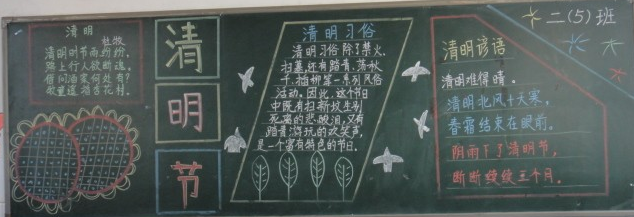 清明
杜牧
清明时节雨纷纷，
路上行人欲断魂。
借问酒家何处有？
牧童遥指杏花村。
清
明
节
清明习俗
清明习俗除了禁火、
扫墓，还有踏青、荡秋
千、插柳等一系列风俗
活动。因此，这个节日
中既有扫新坟生别
死离的悲酸泪，又有
踏青游玩的欢笑声，
是一个富有特色的节日。
二(5)班
清明谚语
清明难得晴。
清明北风十天寒，
春霜结束在眼前。
阴雨下了清明节，
断断续续三个月。